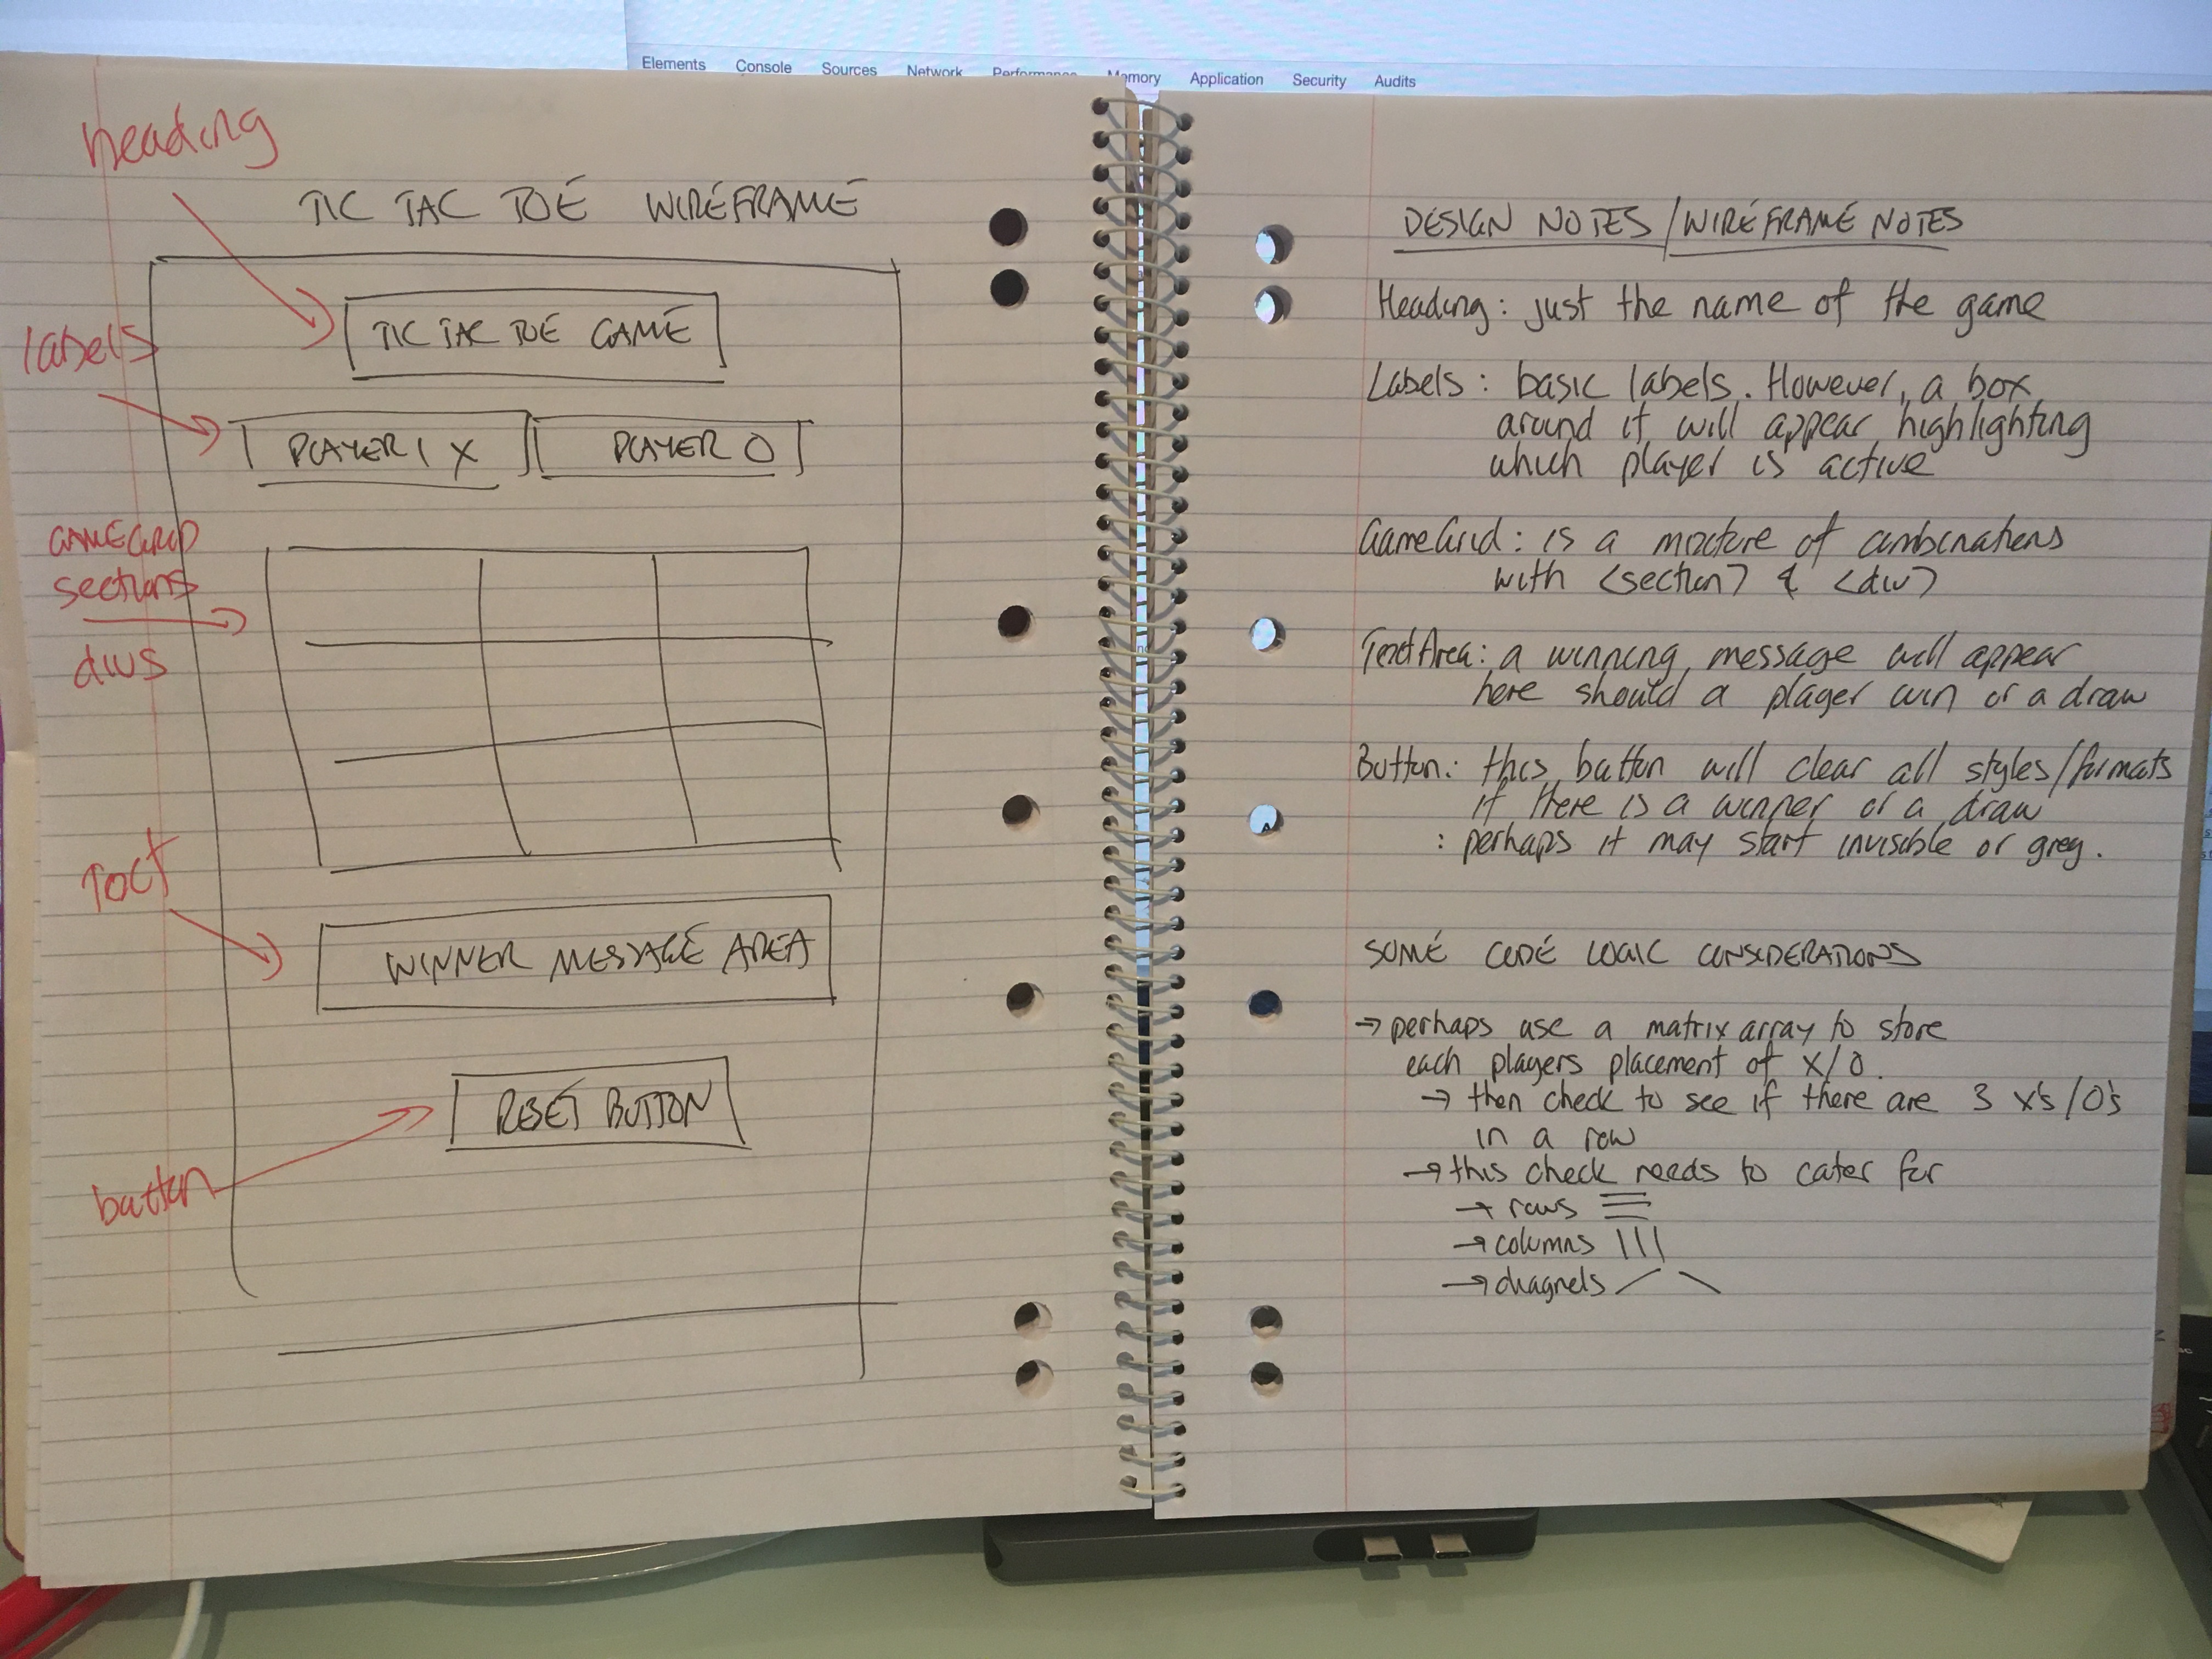 Elements Console Sources Network Performance Memory Application Security Audits
heading
TIC TAC TOE WIREFRAME
TIC TAC TOE GAME
labels
PLAYER 1 X
PLAYER O
GAMEGRID
sections
divs
Text
WINNER MESSAGE AREA
RESET BUTTON
button
DESIGN NOTES/WIREFRAME NOTES
Heading: just the name of the game
Labels: basic labels. However, a box
around it will appear highlighting
which player is active
GameGrid: is a mixture of combinations
with <section> & <div>
TextArea: a winning message will appear
here should a player win or a draw
Button: this button will clear all styles/formats
if there is a winner or a draw
: perhaps it may start invisible or grey.
SOME CODE LOGIC CONSIDERATIONS
→ perhaps use a matrix array to store
each players placement of X/O.
→ then check to see if there are 3 X's/O's
in a row
→ this check needs to cater for
→ rows
→ columns
→ diagnels